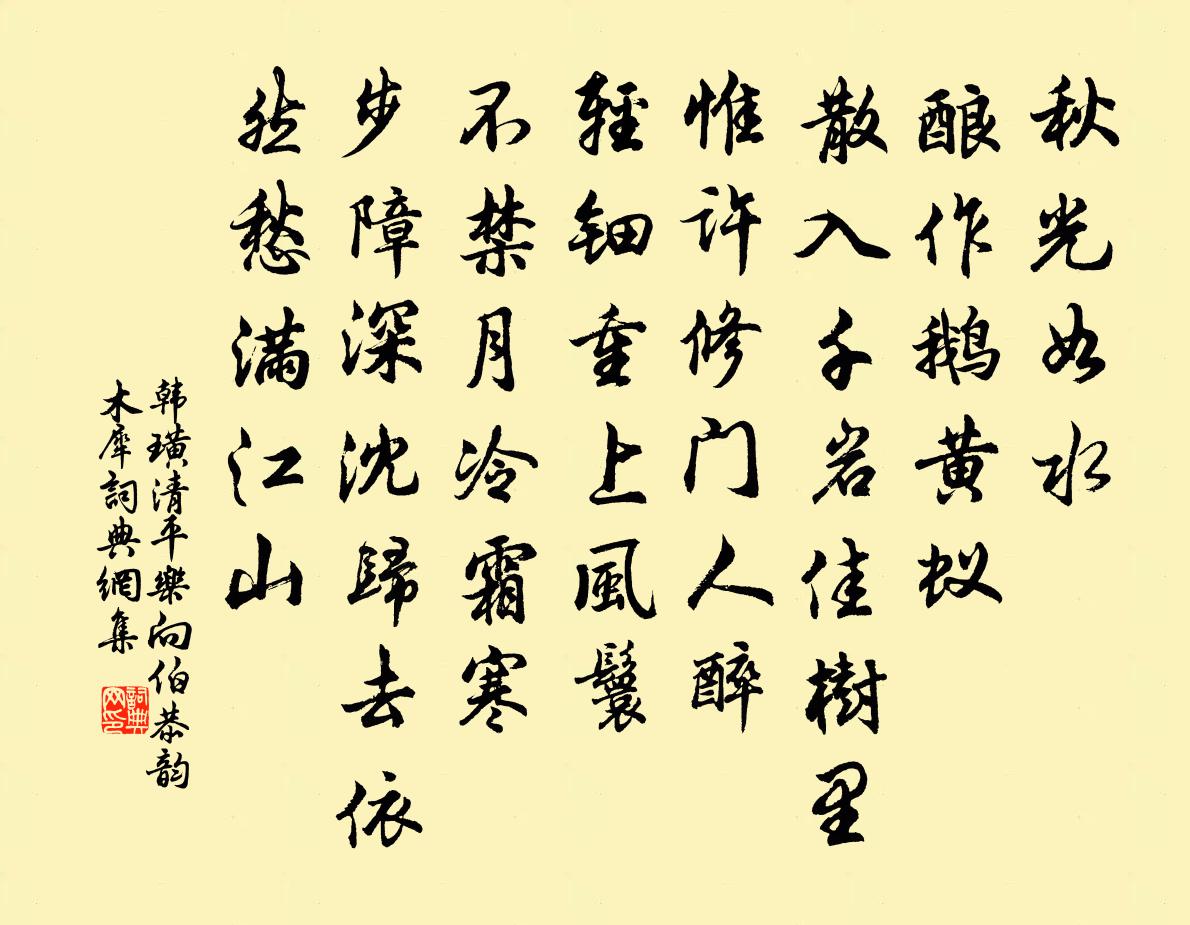 秋光如水
酿作鹅黄蚁
散入千岩佳樹里
惟许修门人醉
輕钿重上風鬟
不禁月冷霜寒
步障深沈歸去依
然愁满江山
韩璜清平樂向伯恭韵
木犀詞典網集
詞典网印